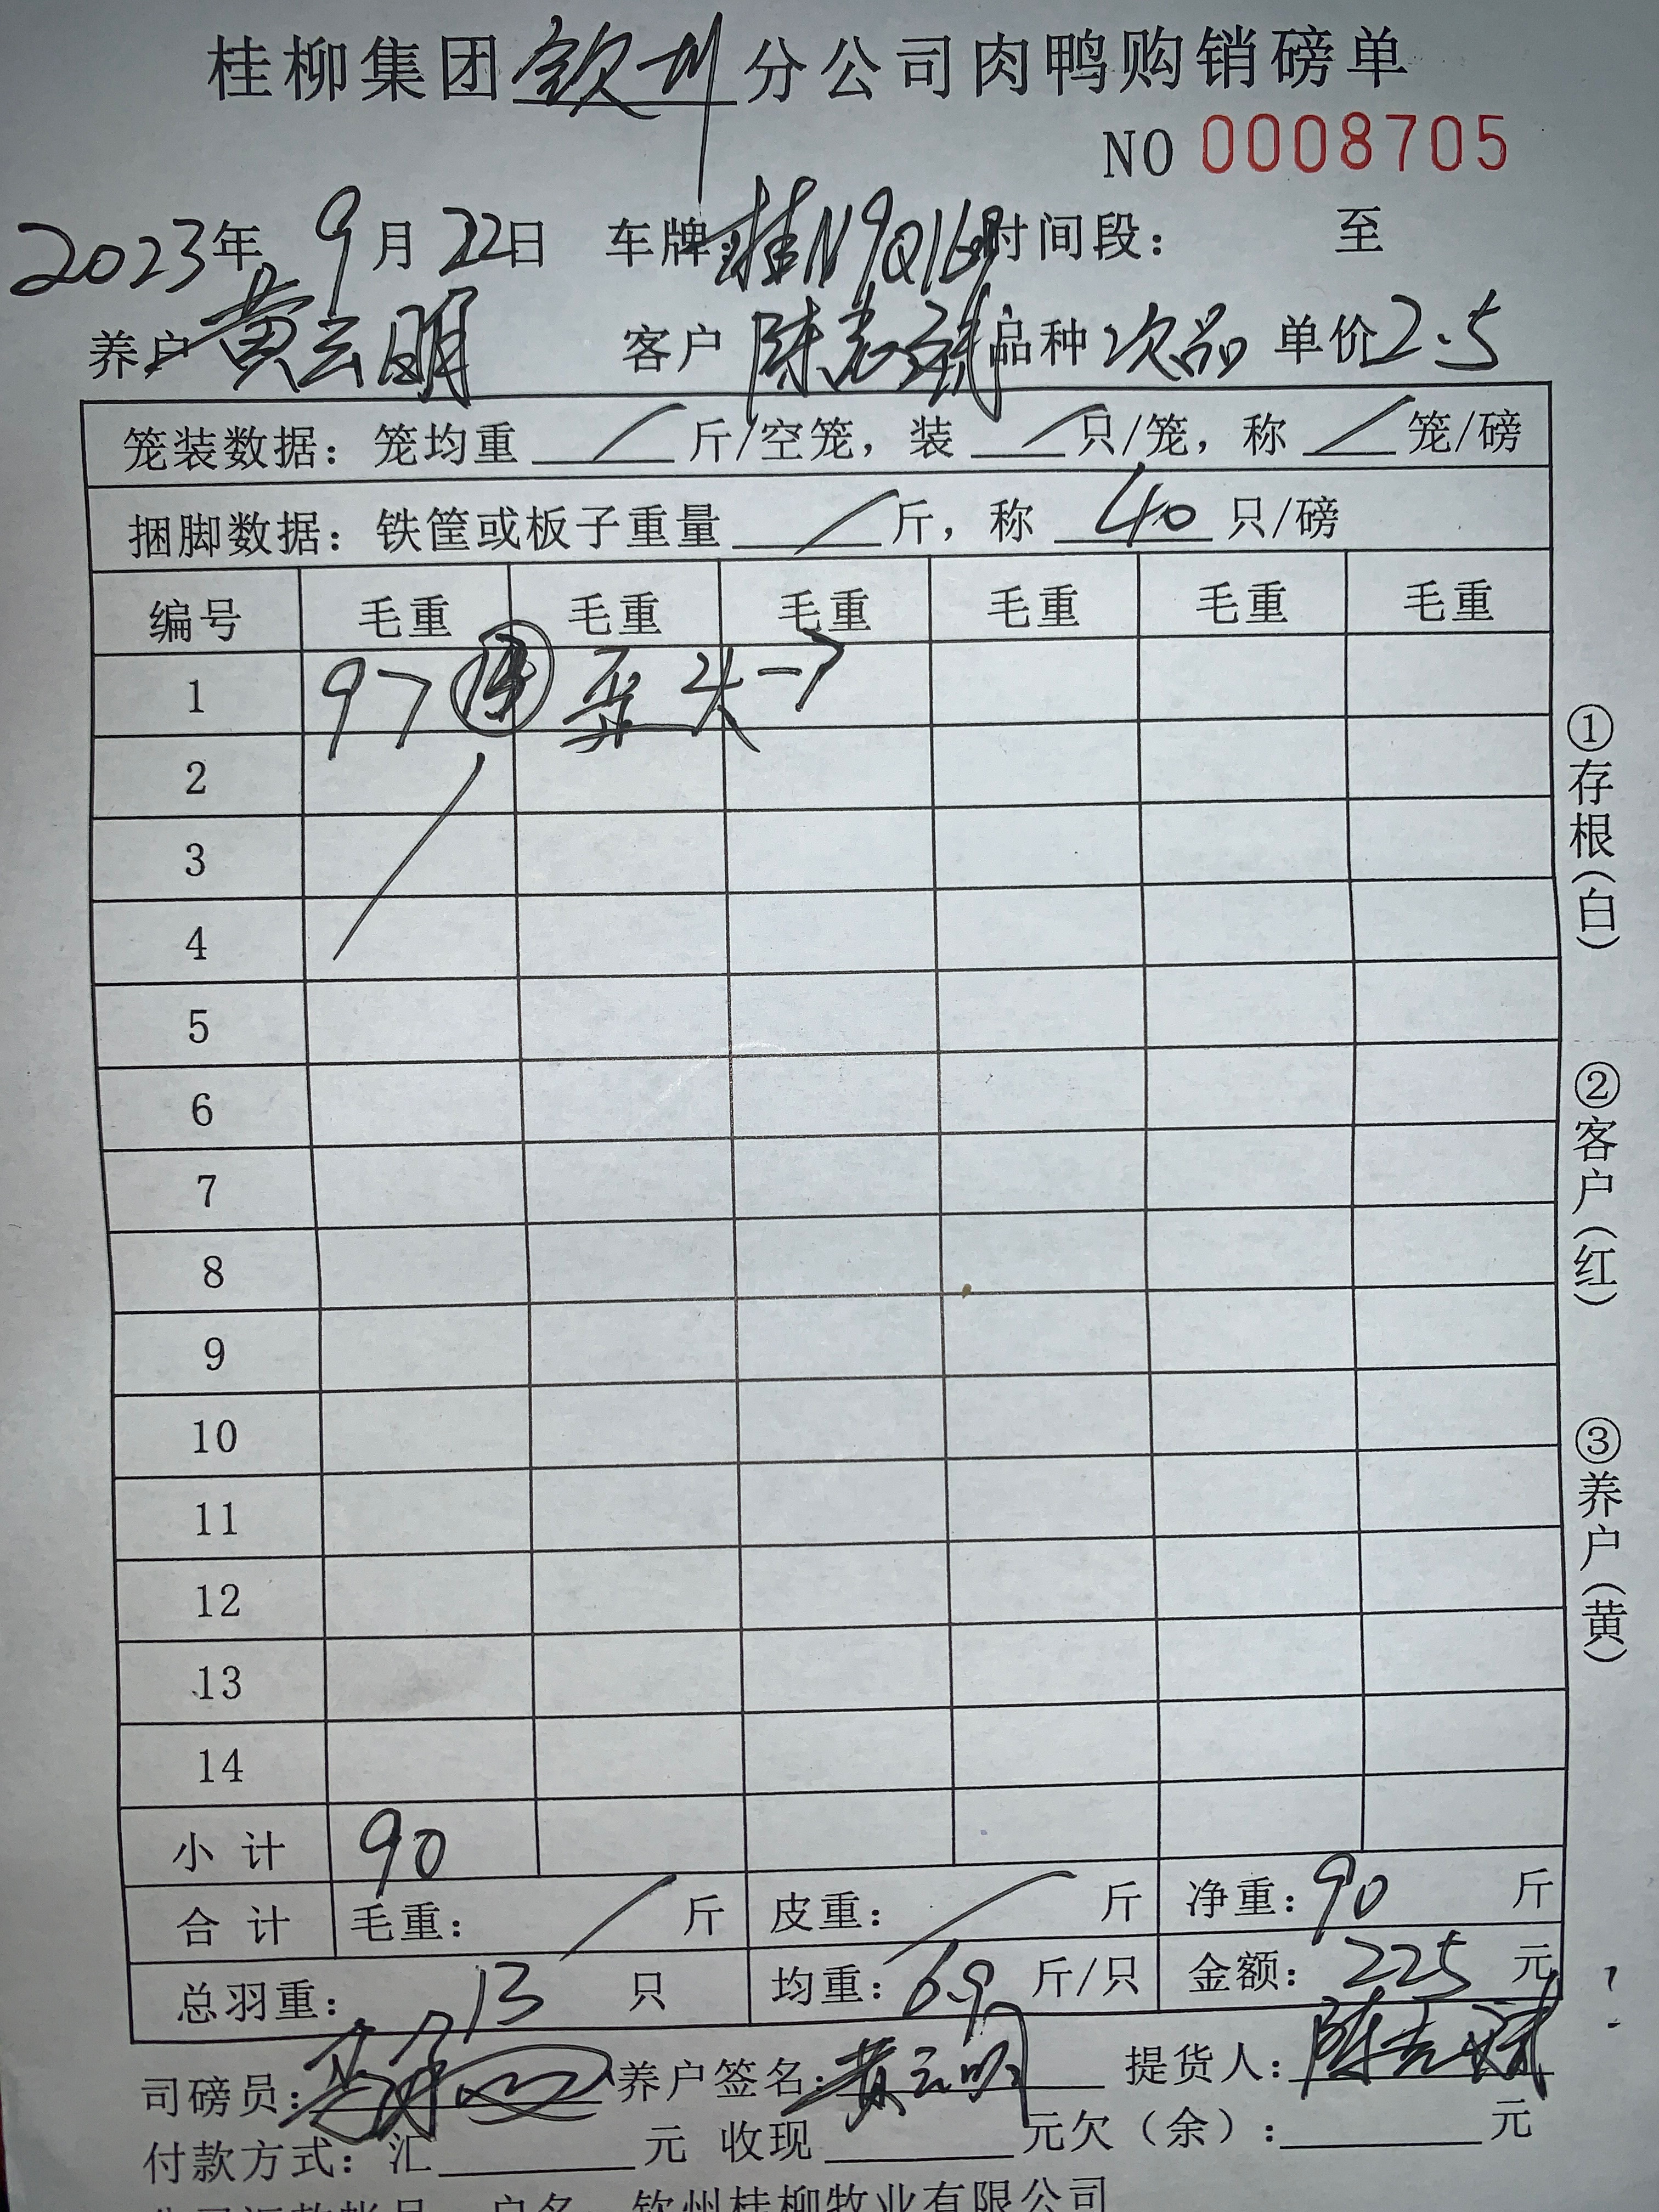 桂柳集团钦州分公司肉鸭购销磅单
NO 0008705
2023年 9月 22日 车牌:桂N9Q169 时间段: 至
养户 黄云明 客户 陈志 品种 次品 单价 2.5
笼装数据: 笼均重 / 斤/空笼, 装 / 只/笼, 称 / 笼/磅
捆脚数据: 铁筐或板子重量 / 斤, 称 40 只/磅
编号 毛重 毛重 毛重 毛重 毛重 毛重
1 97 歪头→
2
3
4
5
6
7
8
9
10
11
12
13
14
小计 90
合计 毛重: / 斤 皮重: / 斤 净重: 90 斤
总羽重: 13 只 均重: 6.9 斤/只 金额: 225 元
司磅员: 养户签名: 黄云明 提货人: 陈志
付款方式: 汇 元 收现 元欠(余): 元
户名: 钦州桂柳牧业有限公司
①存根(白)
②客户(红)
③养户(黄)